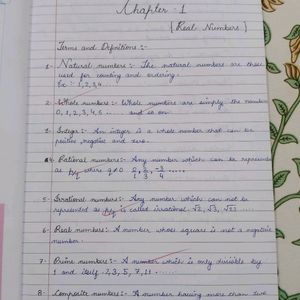 Chapter - 1
{Real Numbers}
Terms and Definitions :-
1- Natural numbers :- The natural numbers are those
used for counting and ordering.
Ex :- 1, 2, 3, 4
2- Whole numbers :- Whole numbers are simply the numbers
0, 1, 2, 3, 4, 5 ..... and so on
3- Integer :- An integer is a whole number that can be
positive, negative and zero.
4- Rational numbers :- Any number which can be represented
as p/q where q≠0
5- Irrational numbers :- Any number which can not be
represented as p/q is called irrational. √2, √3, √5
6- Real numbers :- A number whose square is not a negative
number.
7- Prime number :- A number which is only divisible by
1 and itself. 2, 3, 5, 7, 11
8- Composite numbers :- A number having more than two